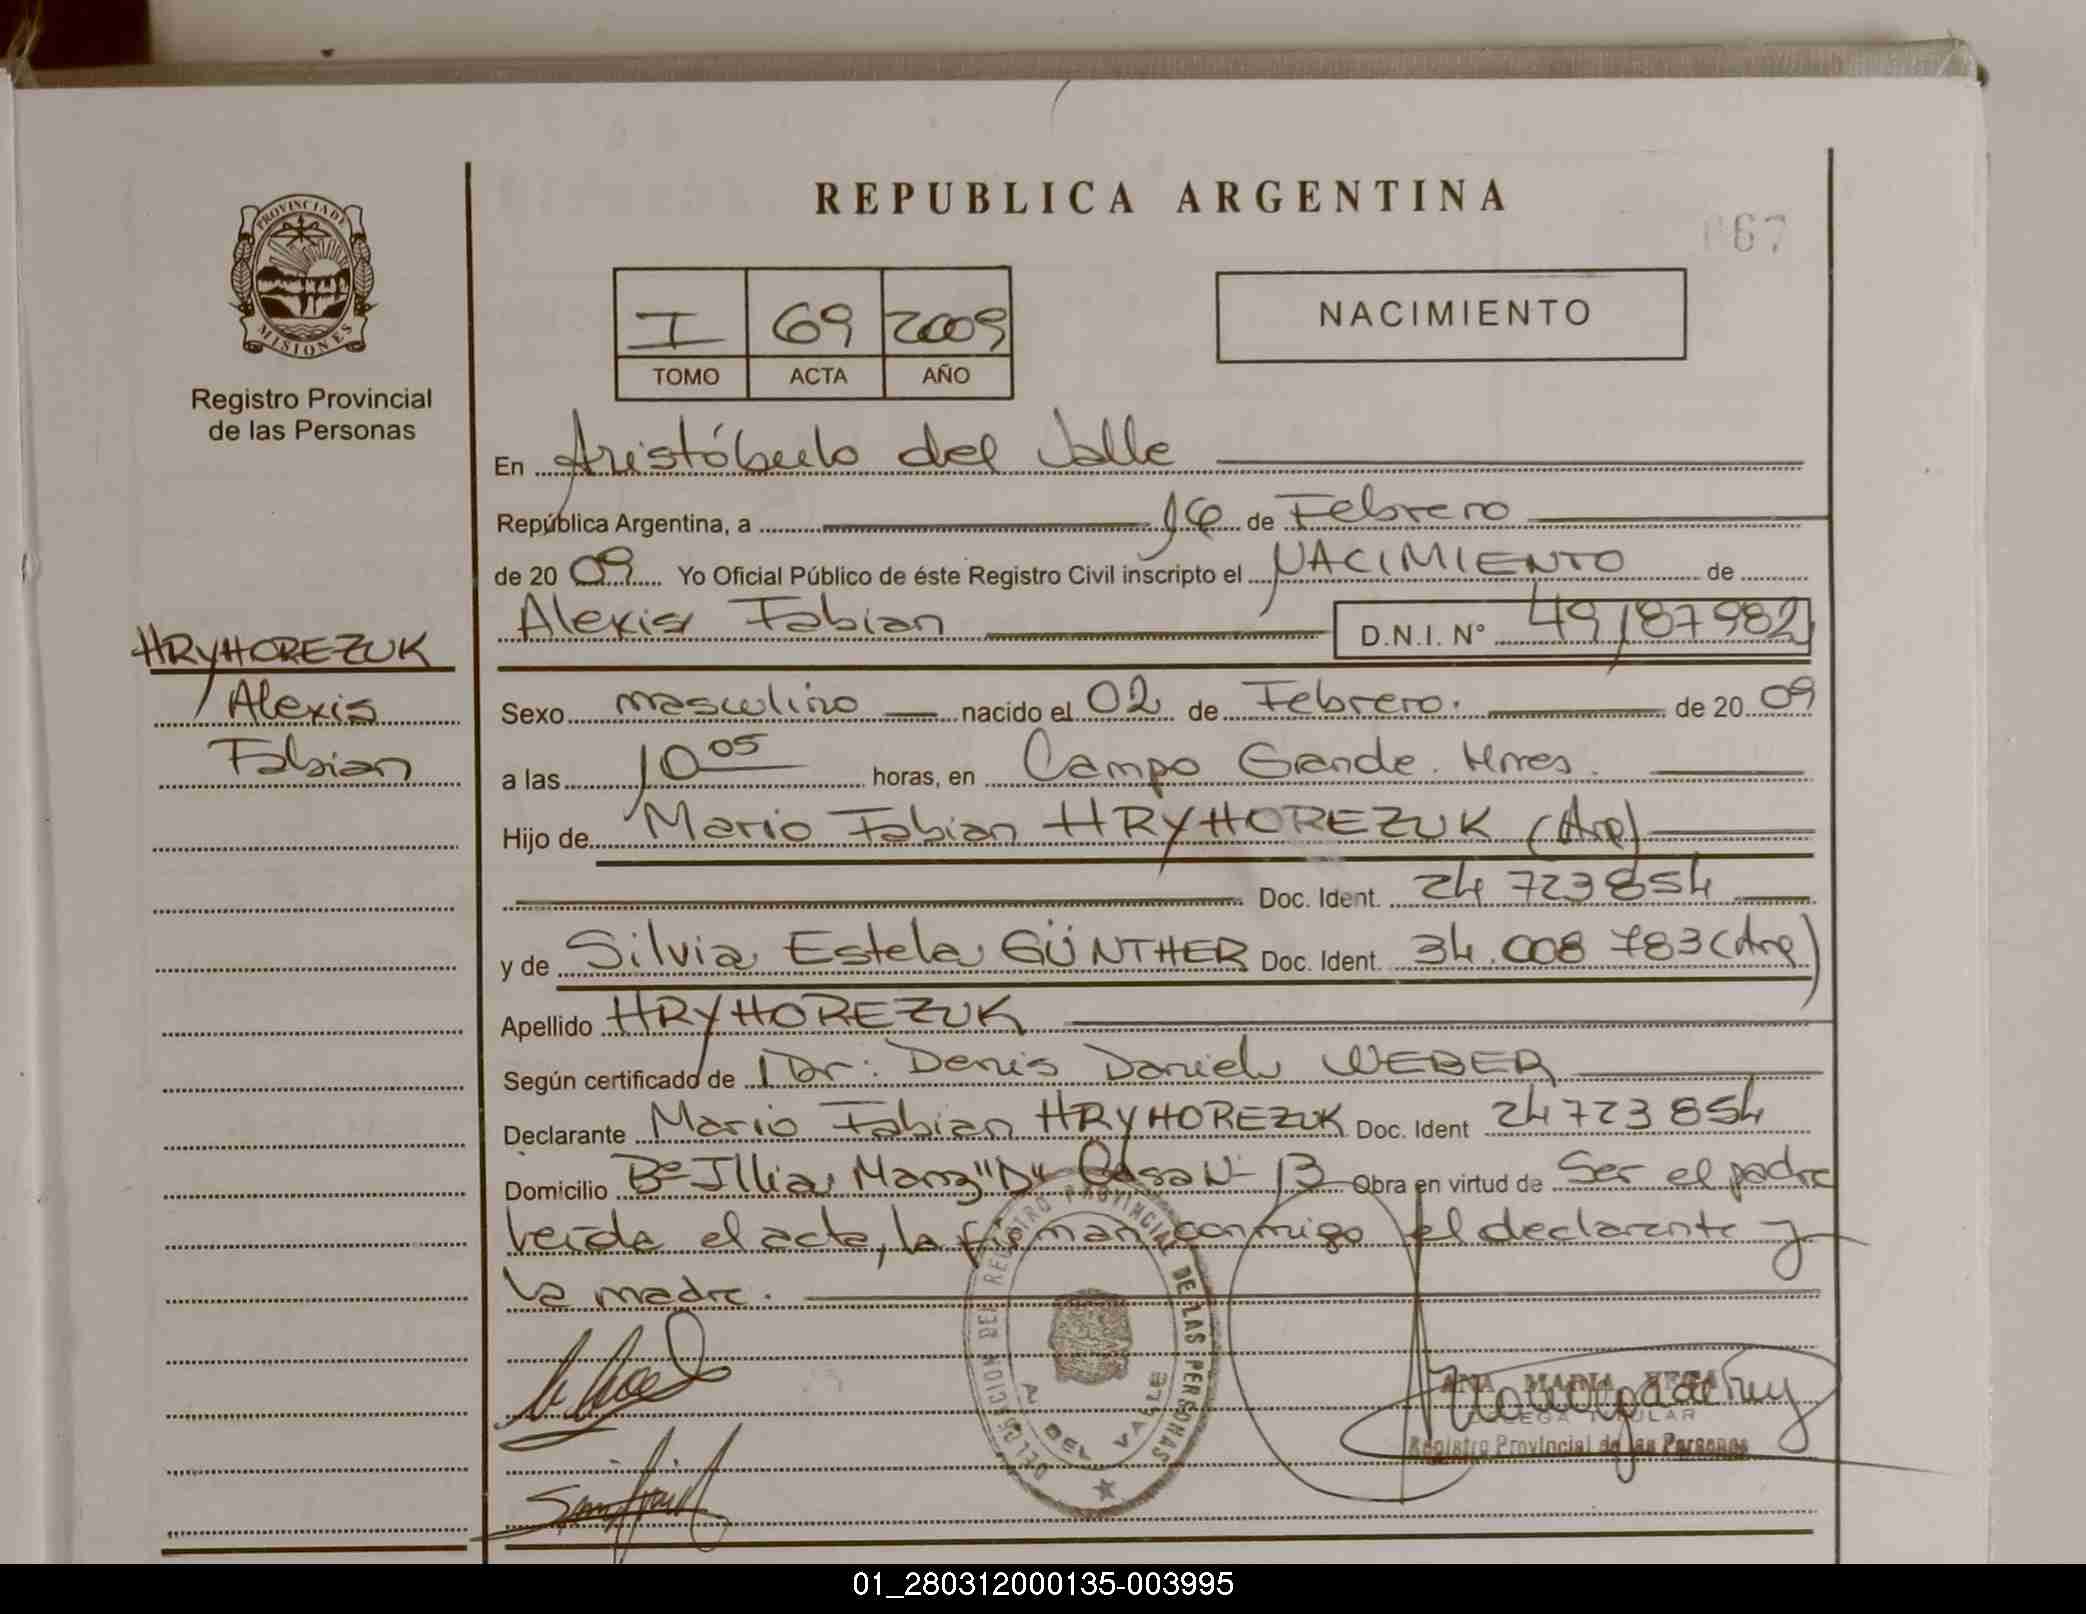 REPUBLICA ARGENTINA
67
PROVINCIA DE
MISIONES
Registro Provincial
de las Personas
I 69 2009
TOMO ACTA AÑO
NACIMIENTO
En Aristóbulo del Valle
República Argentina, a 16 de Febrero
de 20 09 Yo Oficial Público de éste Registro Civil inscripto el NACIMIENTO de
Alexis Fabian D.N.I. N° 49187982
HRYHOREZUK
Alexis
Fabian
Sexo masculino nacido el 02 de Febrero. de 20 09
a las 10 05 horas, en Campo Grande. Mnes.
Hijo de Mario Fabian HRYHOREZUK (Arg)
Doc. Ident. 24 723854
y de Silvia Estela GÜNTHER Doc. Ident. 34.008 783 (Arg)
Apellido HRYHOREZUK
Según certificado de Dr: Denis Daniel WEBER
Declarante Mario Fabian HRYHOREZUK Doc. Ident 24723854
Domicilio B° Illia, Manz "D" Casa N° 13 Obra en virtud de Ser el padre
leída el acta, la firman conmigo el declarante y
la madre.
DELEGACION DEL REGISTRO PROVINCIAL DE LAS PERSONAS
A. DEL VALLE
ANA MARIA VEGA
DELEGADA TITULAR
Registro Provincial de las Personas
01_280312000135-003995